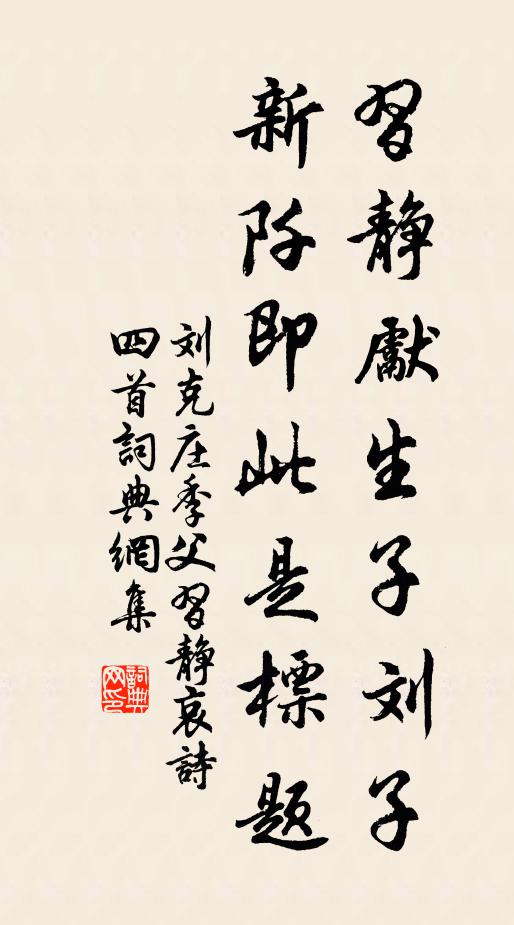 習静獻生子刘子
新阡即此是標題
刘克庄季父習静哀詩
四首詞典網集
詞典网印